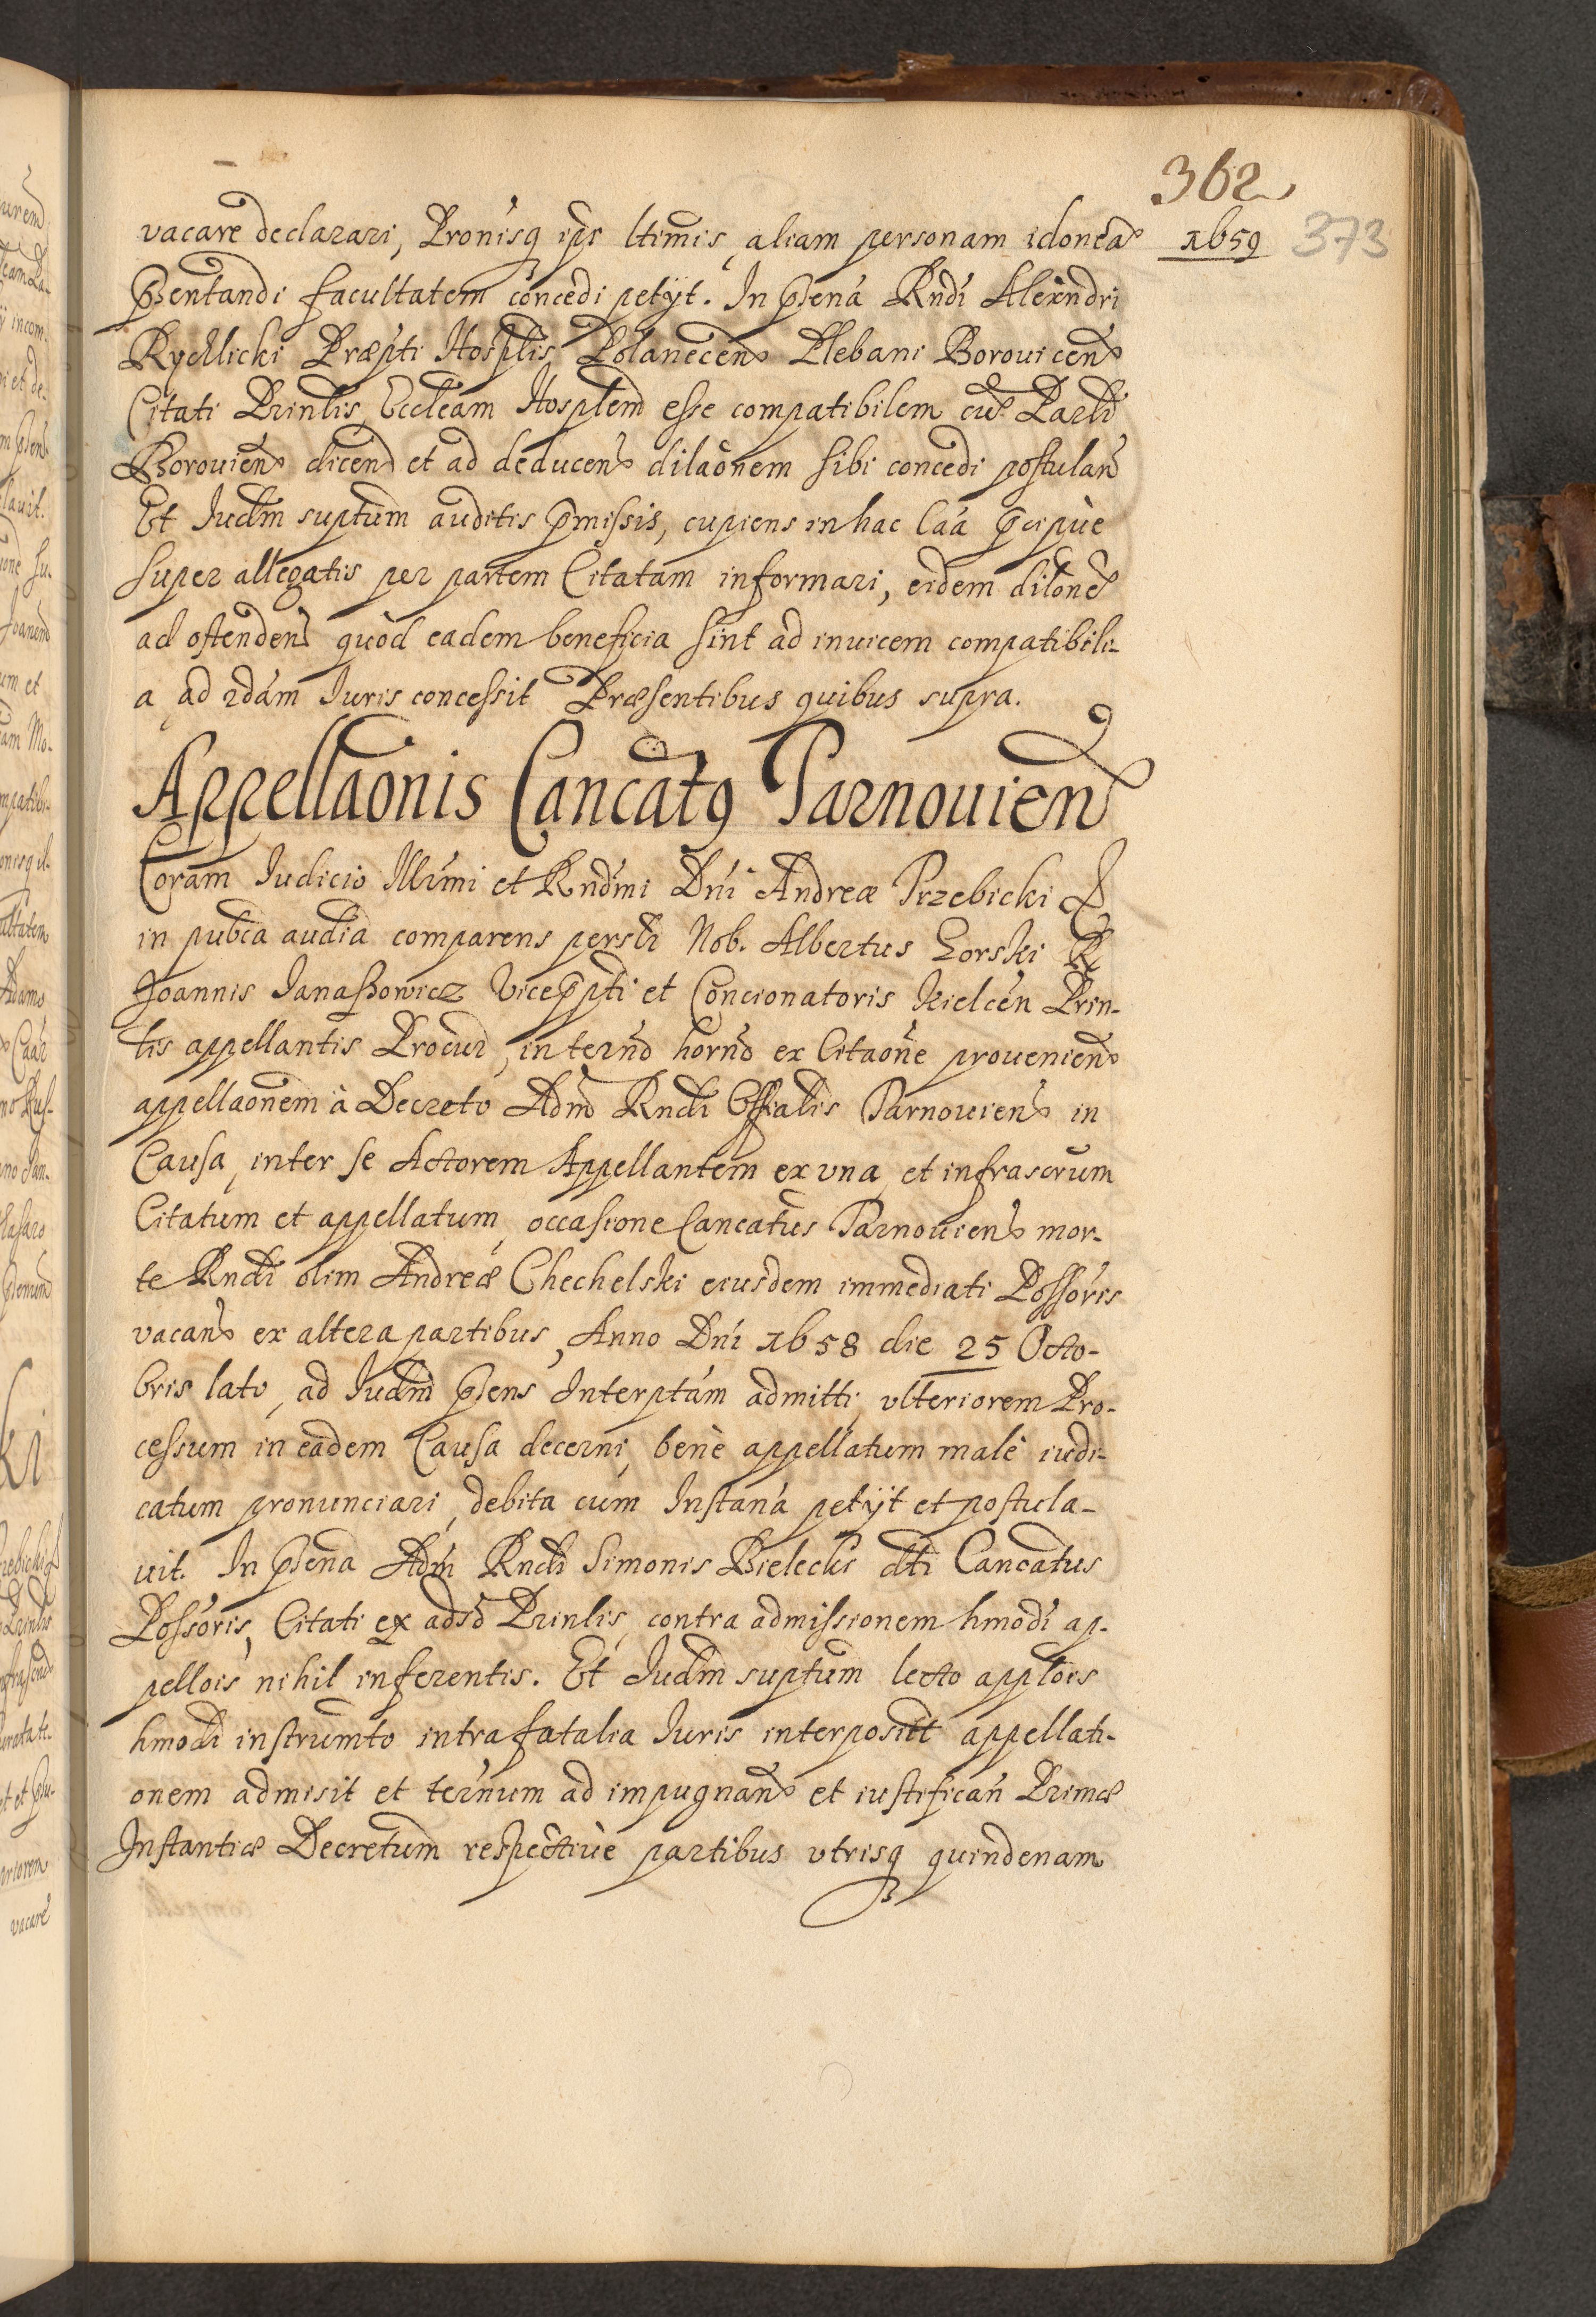 362
1659 373
vacare declarari, Pronisq ipi ltimis, aliam personam idonea
Psentandi facultatem concedi petyt. In Psena Rndi Alexndri
Rychlicki Præpti Hosplis Polanecen Plebani Borouicen
Citati Prinlis, Eccleam Hosplem esse compatibilem cu Parli
Borouien dicen et ad deducen dilaonem sibi concedi postulan
Et Iudm suptum auditis pmissis, cupiens in hac Caa pcipuè
super allegatis per partem Citatam informari, eidem dilone
ad ostenden quòd eadem beneficia sint ad inuicem compatibili-
a, ad 2dam Iuris concessit Præsentibus quibus supra.
Appellaonis Cancatq Tarnouien
Coram Iudicio Illmi et Rndmi Dni Andreæ Trzebicki &
in pubca audia comparens persli Nob. Albertus Gorski R
Joannis Janaszowicz Viceppti et Concionatoris Kielcen Prin-
lis appellantis Procur, in termo horno ex Citaone prouenien
appellaonem à Decreto Adm Rndi Offialis Tarnouien in
Causa, inter se Actorem Appellantem ex vna, et infrascrum
Citatum et appellatum, occasione Cancatus Tarnouien mor-
te Rndi olim Andreæ Chechelski eiusdem immediati Possoris
vacan ex altera partibus, Anno Dni 1658 die 25 Octo-
bris lato, ad Iudm Psens Interptam admitti, vlteriorem Pro-
cessum in eadem Causa decerni, benè appellatum malè iudi-
catum pronunciari, debita cum Instana petyt et postula-
uit. In Psena Adm Rndi Simonis Bielecki dti Cancatus
Possoris, Citati ex adso Prinlis, contra admissionem hmodi ap-
pellois nihil inferentis. Et Iudm suptum lecto applois
hmodi instrumto intra fatalia Iuris interpositt appellati-
onem admisit et termum ad impugnan et iustifican Primæ
Instantiæ Decretum respectiuè partibus vtrisq quindenam